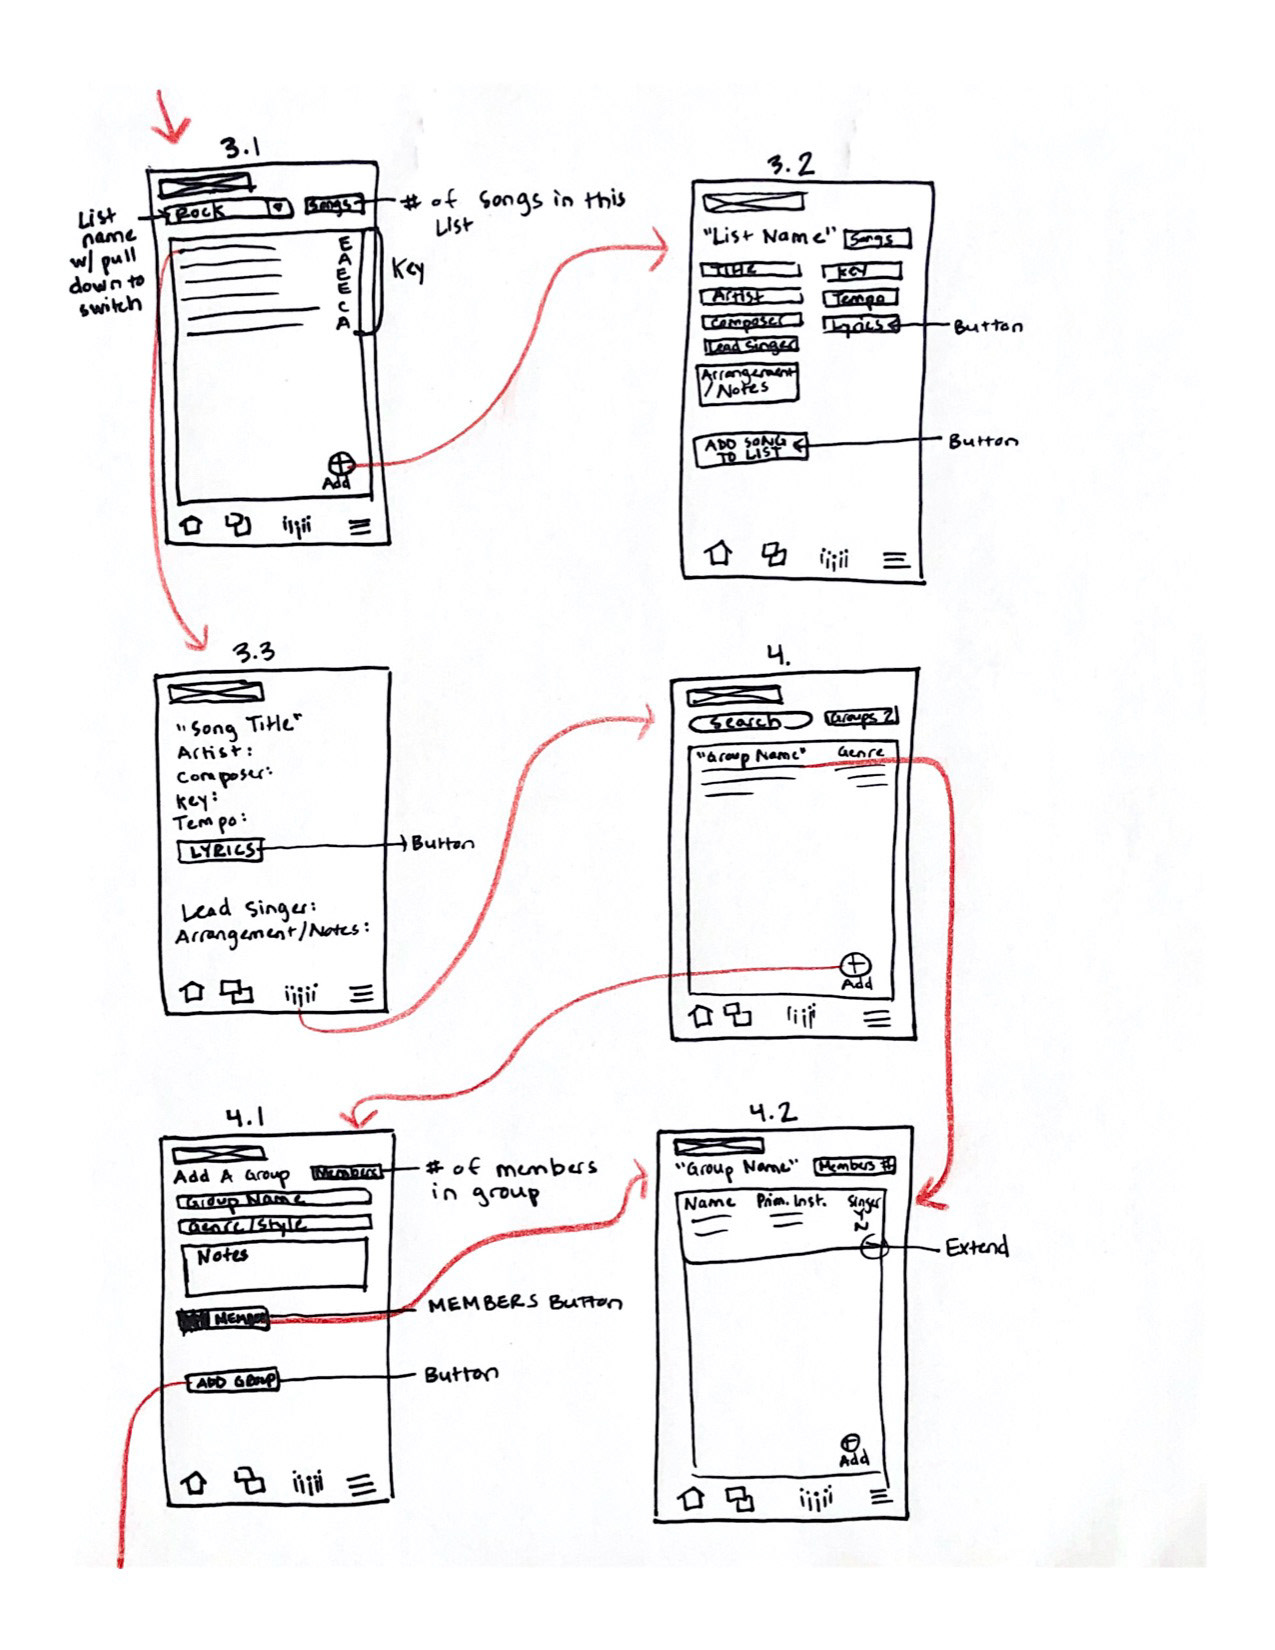 3.1
Rock
Songs
# of Songs in this
List
List
name
w/ pull
down to
switch
E
A
E
E
C
A
Key
Add
3.2
"List Name" Songs
TITLE Key
Artist Tempo
Composer Lyrics
Button
Lead Singer
Arrangement
/Notes
ADD SONG
TO LIST
Button
3.3
"Song Title"
Artist:
Composer:
Key:
Tempo:
LYRICS
Button
Lead Singer:
Arrangement/Notes:
4.
Search Groups
"Group Name" Genre
Add
4.1
Add A Group Members
# of members
in group
Group Name
Genre/Style
Notes
MEMBERS Button
ADD GROUP
Button
4.2
"Group Name" Members #
Name Prim. Inst. Singer
Y
N
Extend
Add